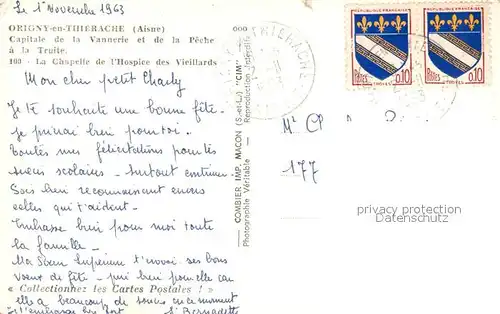 Le 1er Novembre 1963
ORIGNY-en-THIERACHE (Aisne)
Capitale de la Vannerie et de la Pêche
à la Truite.
103 - La Chapelle de l'Hospice des Vieillards
Mon cher petit Charly
Je te souhaite une bonne fête -
je prierai bien pour toi.
Toutes mes félicitations pour tes
succès scolaires - surtout continue.
Sois bien reconnaissant envers
celles qui t'aident -
Embrasse bien pour moi toute
la famille -
Ma Sœur Supérieure t'envoi ses bons
vœux de fête - prie bien pour elle car
« Collectionnez les Cartes Postales ! »
elle a beaucoup de soucis en ce moment
Sr Bernadette
COMBIER IMP. MACON (S.-et-L.) "CIM"
Photographie Véritable - Reproduction Interdite
THIERACHE
POSTES 0,10
TROYES
POSTES 0,10
TROYES
177
privacy protection
Datenschutz